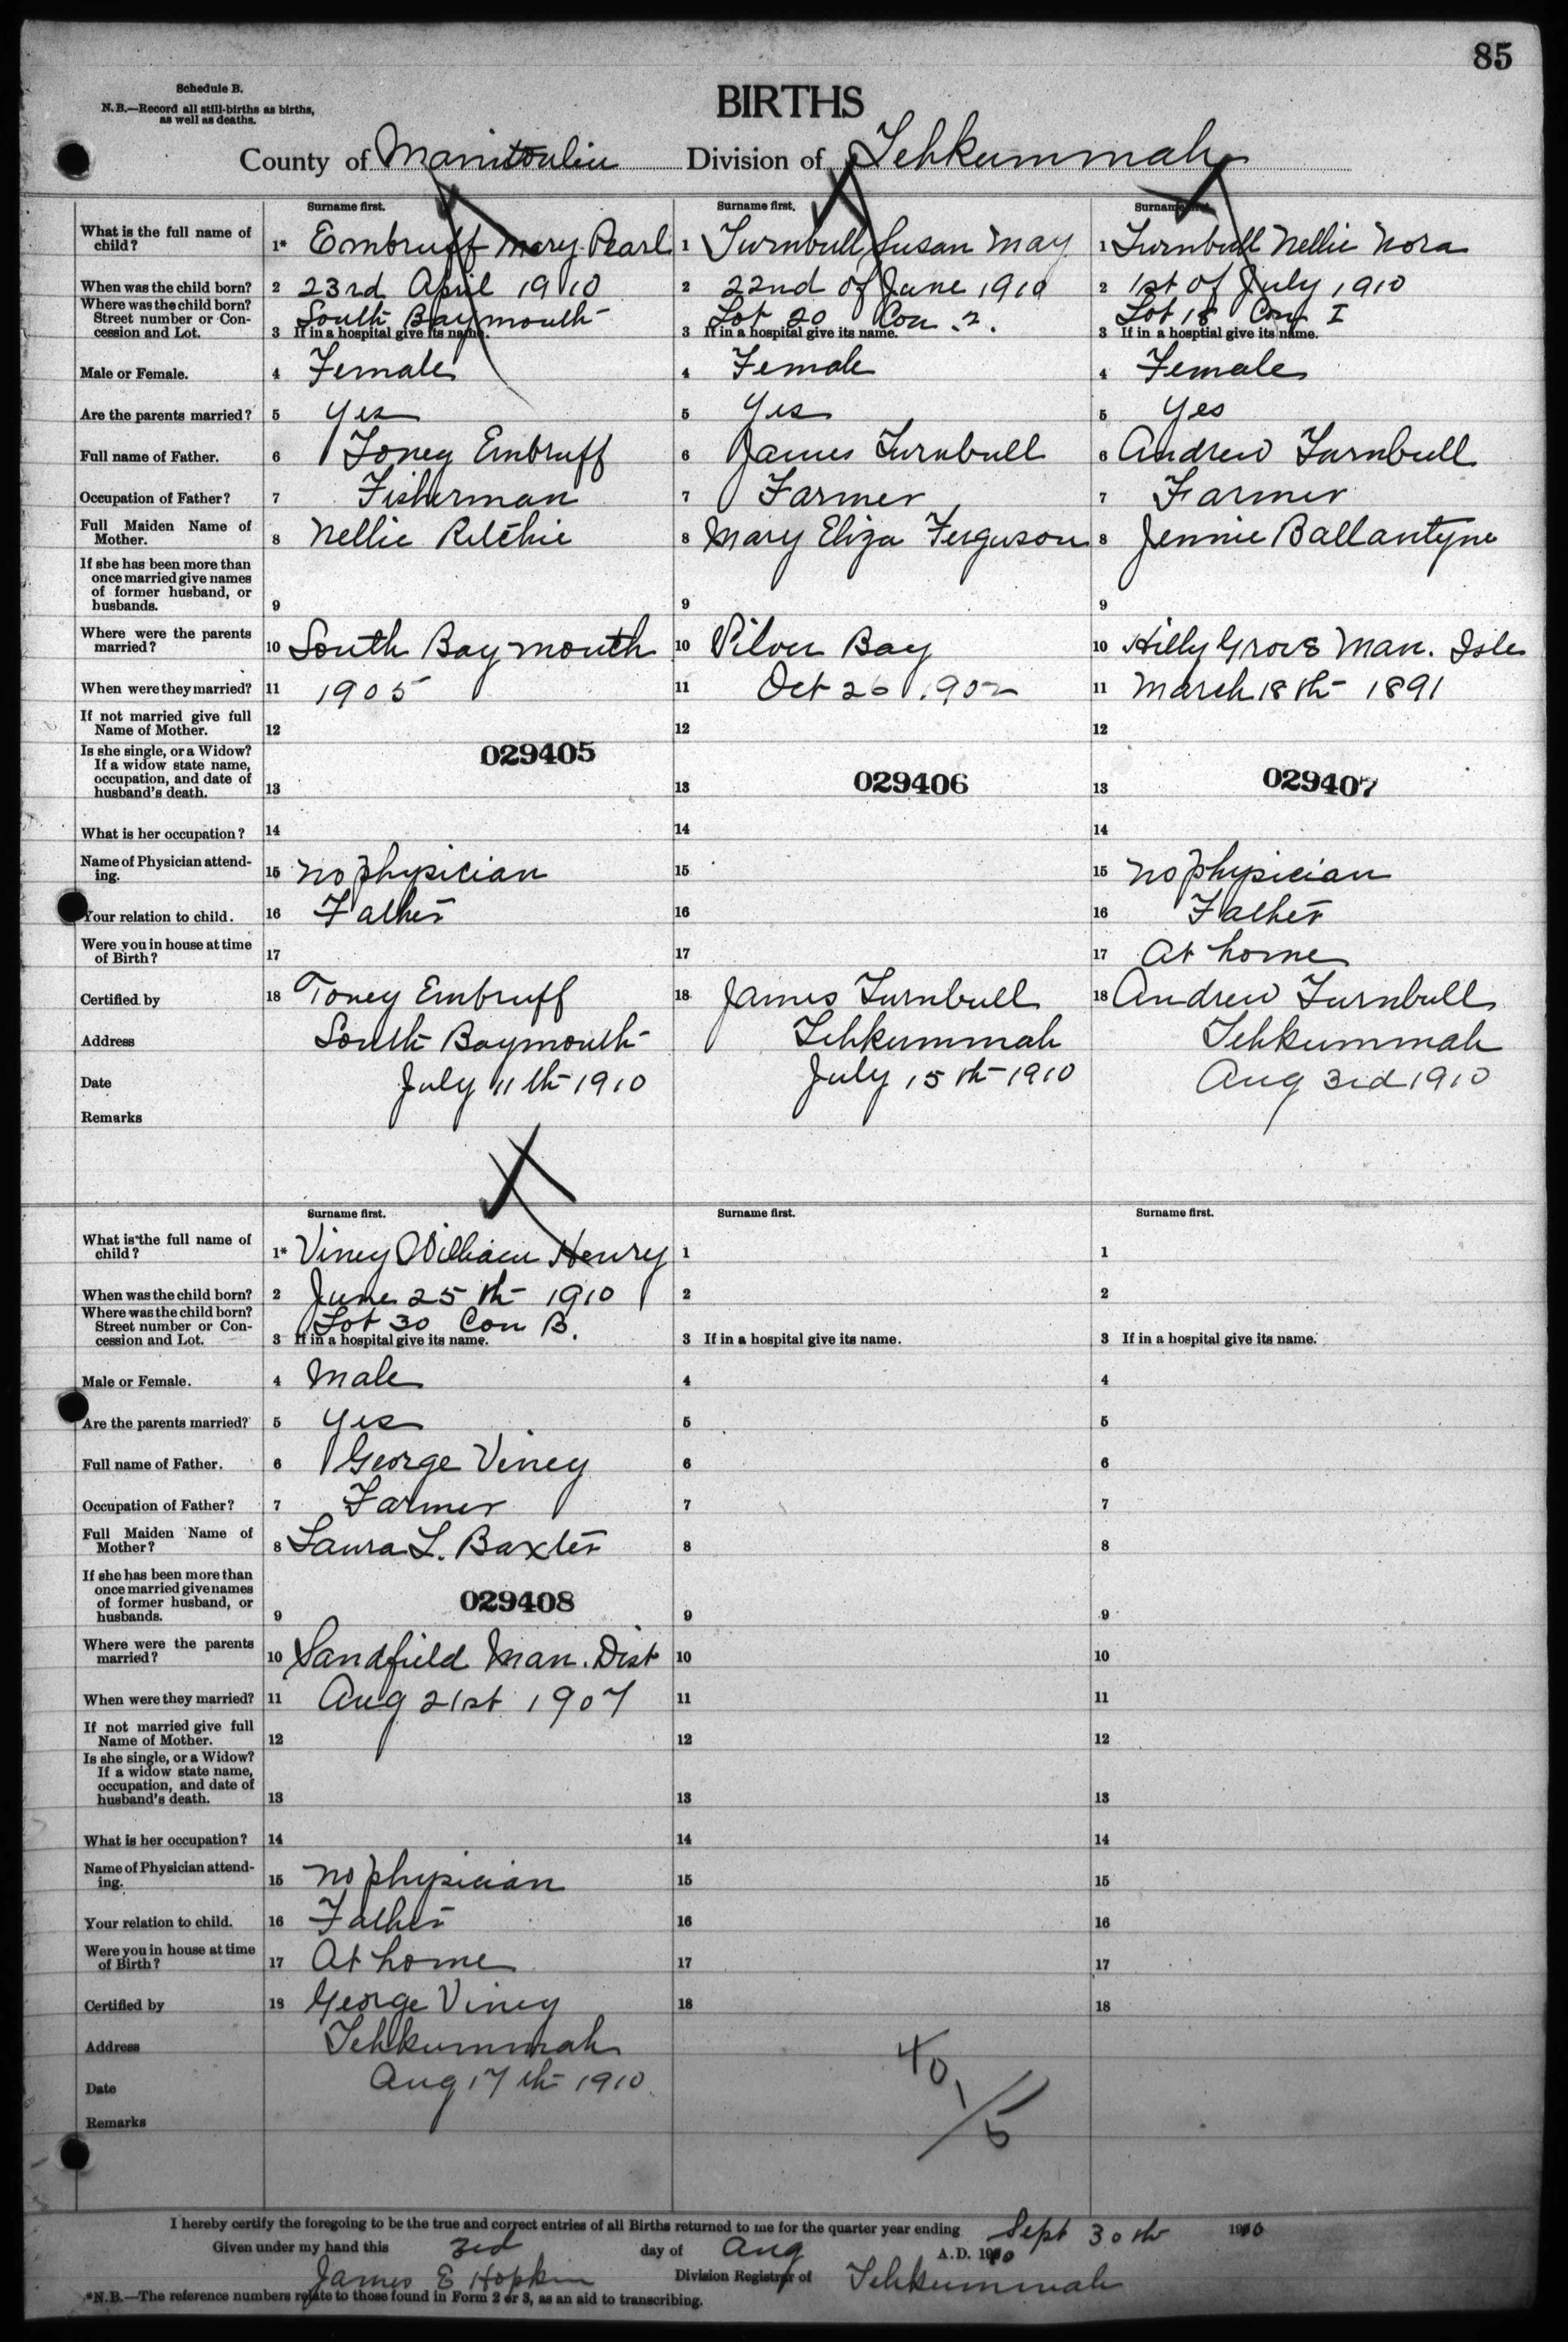 85
Schedule B.
N.B.—Record all still-births as births,
as well as deaths.
BIRTHS
County of Manitoulin Division of Tehkummah
Surname first. Surname first. Surname first.
What is the full name of child? 1* Embruff Mary Pearl 1 Turnbull Susan May 1 Turnbull Nellie Nora
When was the child born? 2 23rd April 1910 2 22nd of June 1910 2 1st of July 1910
Where was the child born? Street number or Concession and Lot. South Baymouth Lot 20 Con. 2. Lot 18 Con I
3 If in a hospital give its name. 3 If in a hospital give its name. 3 If in a hosptial give its name.
Male or Female. 4 Female 4 Female 4 Female
Are the parents married? 5 Yes 5 Yes 5 Yes
Full name of Father. 6 Toney Embruff 6 James Turnbull 6 Andrew Turnbull
Occupation of Father? 7 Fisherman 7 Farmer 7 Farmer
Full Maiden Name of Mother. 8 Nellie Ritchie 8 Mary Eliza Ferguson 8 Jennie Ballantyne
If she has been more than once married give names of former husband, or husbands. 9 9 9
Where were the parents married? 10 South Bay mouth 10 Silver Bay 10 Hilly Grove Man. Isle
When were they married? 11 1905 11 Oct 26 1902 11 March 18th 1891
If not married give full Name of Mother. 12 12 12
029405 029406 029407
Is she single, or a Widow? If a widow state name, occupation, and date of husband's death. 13 13 13
What is her occupation? 14 14 14
Name of Physician attending. 15 no physician 15 15 no physician
Your relation to child. 16 Father 16 16 Father
Were you in house at time of Birth? 17 17 17 At home
Certified by 18 Toney Embruff 18 James Turnbull 18 Andrew Turnbull
Address South Baymouth Tehkummah Tehkummah
Date July 11th 1910 July 15th 1910 Aug 3rd 1910
Remarks
Surname first. Surname first. Surname first.
What is the full name of child? 1* Viney William Henry 1 1
When was the child born? 2 June 25th 1910 2 2
Where was the child born? Street number or Concession and Lot. Lot 30 Con B.
3 If in a hospital give its name. 3 If in a hospital give its name. 3 If in a hospital give its name.
Male or Female. 4 Male 4 4
Are the parents married? 5 Yes 5 5
Full name of Father. 6 George Viney 6 6
Occupation of Father? 7 Farmer 7 7
Full Maiden Name of Mother? 8 Laura L. Baxter 8 8
If she has been more than once married give names of former husband, or husbands. 9 029408 9 9
Where were the parents married? 10 Sandfield Man. Dist 10 10
When were they married? 11 Aug 21st 1907 11 11
If not married give full Name of Mother. 12 12 12
Is she single, or a Widow? If a widow state name, occupation, and date of husband's death. 13 13 13
What is her occupation? 14 14 14
Name of Physician attending. 15 no physician 15 15
Your relation to child. 16 Father 16 16
Were you in house at time of Birth? 17 At home 17 17
Certified by 18 George Viney 18 18
Address Tehkummah
Date Aug 17th 1910
Remarks
I hereby certify the foregoing to be the true and correct entries of all Births returned to me for the quarter year ending Sept 30th 1910
Given under my hand this 3rd day of Aug A.D. 1910
James E Hopkin Division Registrar of Tehkummah
*N.B.—The reference numbers relate to those found in Form 2 or 3, as an aid to transcribing.